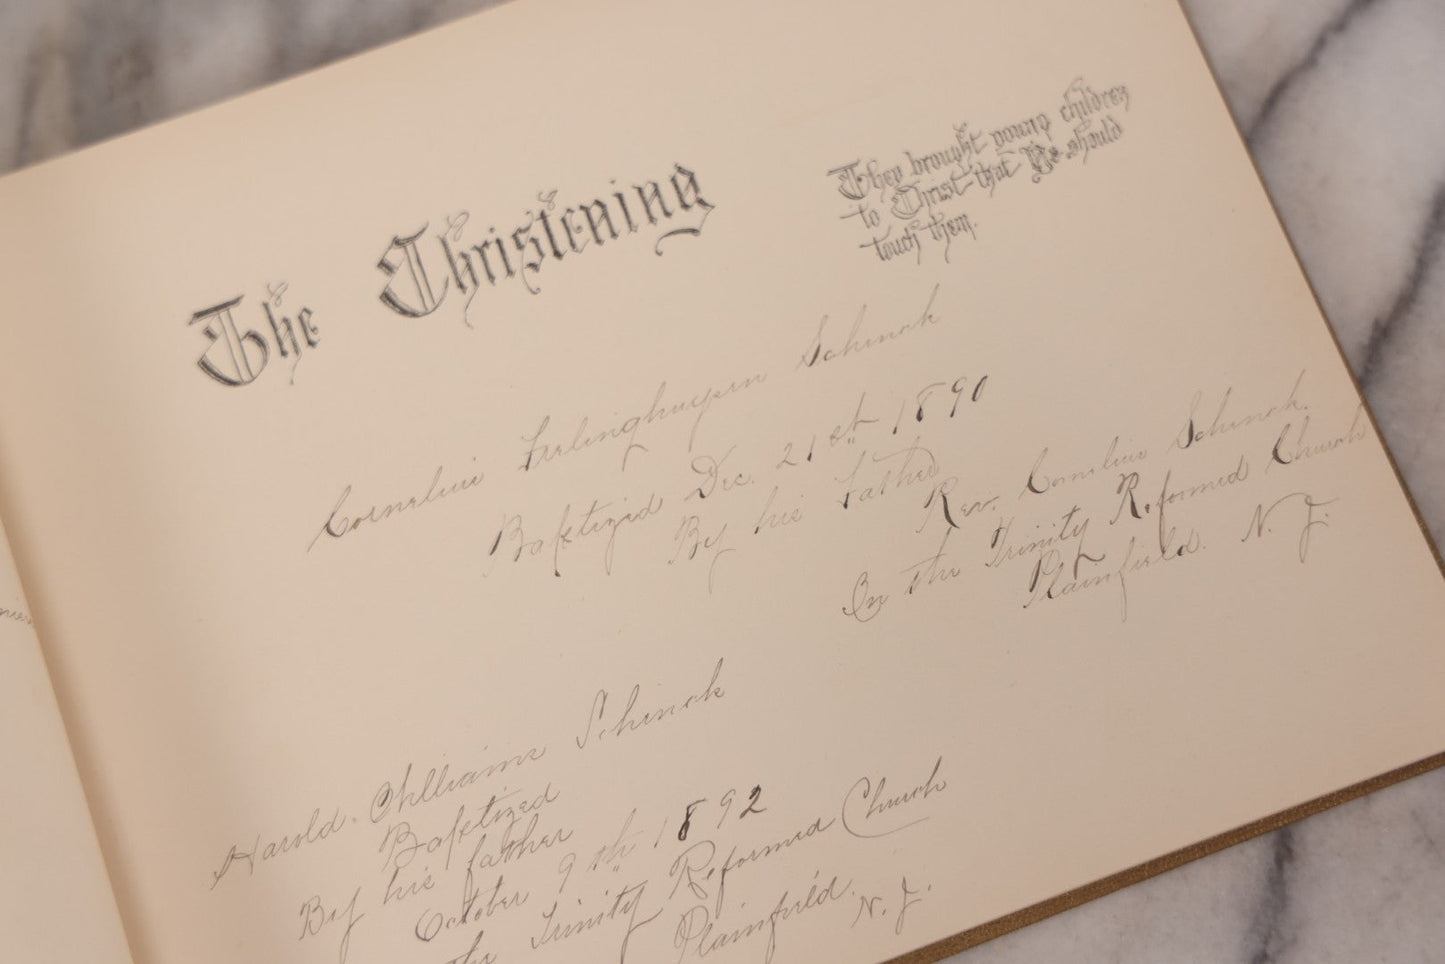 The Christening
They brought young children
to Christ that He should
touch them.
Cornelius Frelinghuysen Schenck
Baptized Dec. 21st 1890
By his Father
Rev. Cornelius Schenck.
In the Trinity Reformed Church
Plainfield. N. J.
Harold. Williams Schenck
Baptized
By his father
October 9th 1892
the Trinity Reformed Church
Plainfield. N. J.